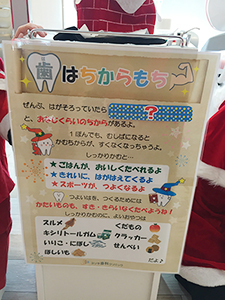 歯はちからもち
ぜんぶ、はがそろっていたら ?
と、おなじくらいのちからがあるよ。
1ぽんでも、むしばになると
かむちからが、すくなくなっちゃうよ。
しっかりかむと…
★ごはんが、おいしくたべれるよ
★きれいに、はがはえてくるよ
★スポーツが、つよくなるよ
つよいはを、つくるためには
かたいものも、すき・きらいなくたべようね!
しっかりかむのに、よいおやつは
スルメ くだもの
キシリトールガム クラッカー
いりこ・にぼし せんべい
ほしいも だよ♪